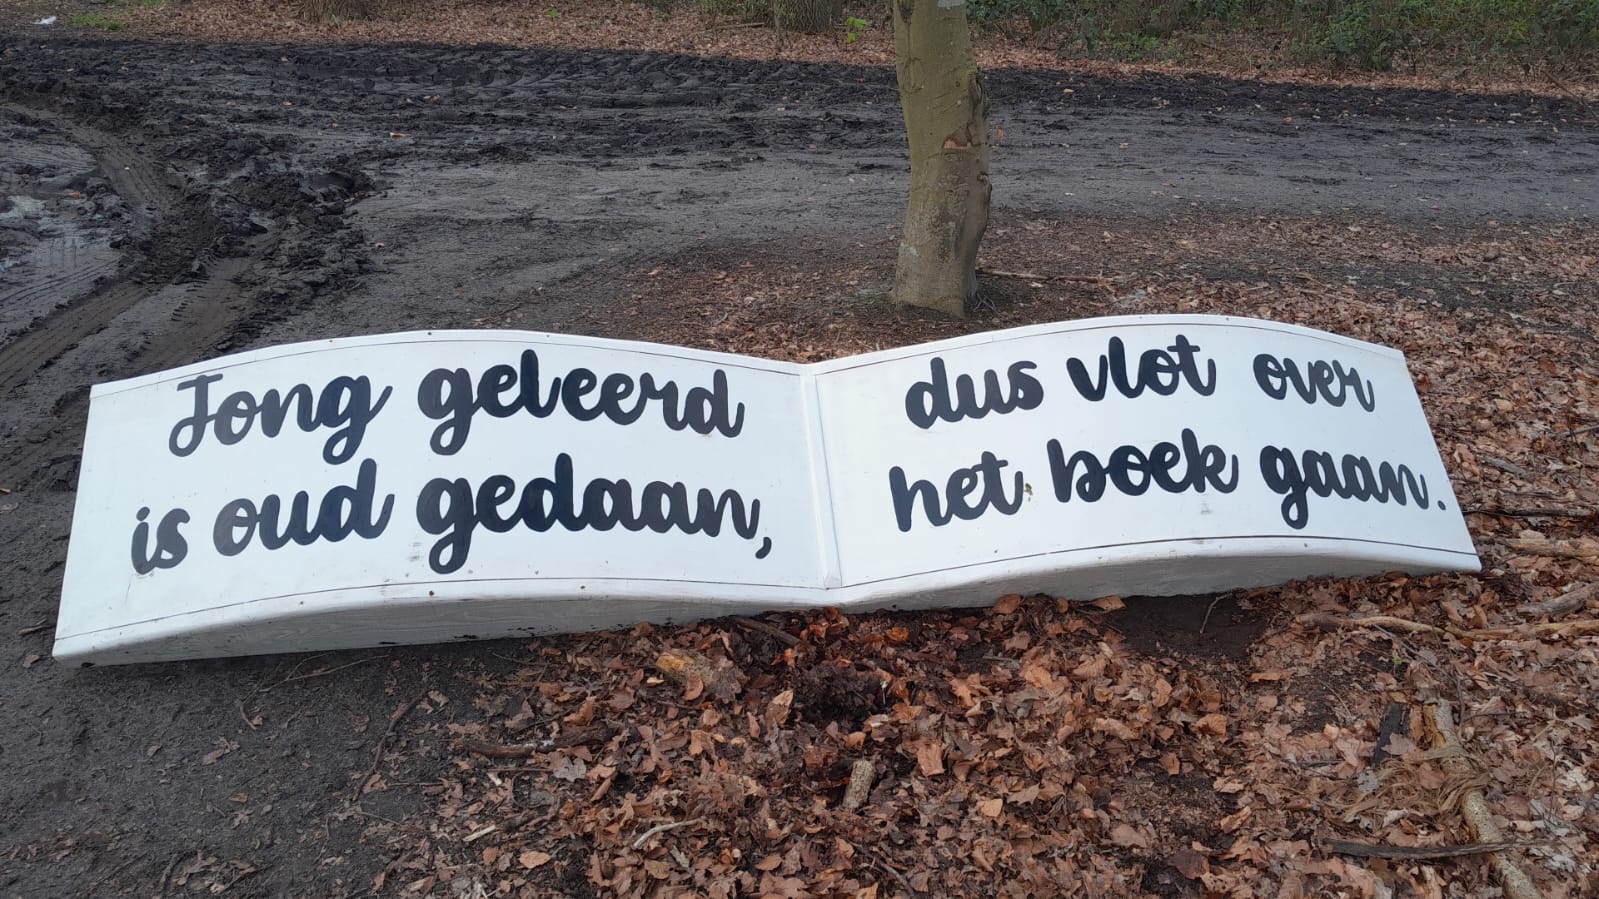 Jong geleerd
is oud gedaan,
dus vlot over
het boek gaan.